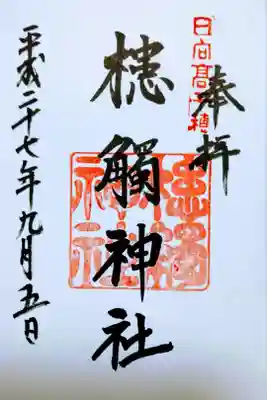 奉拝
日向高千穂
槵觸神社
平成二十七年九月五日